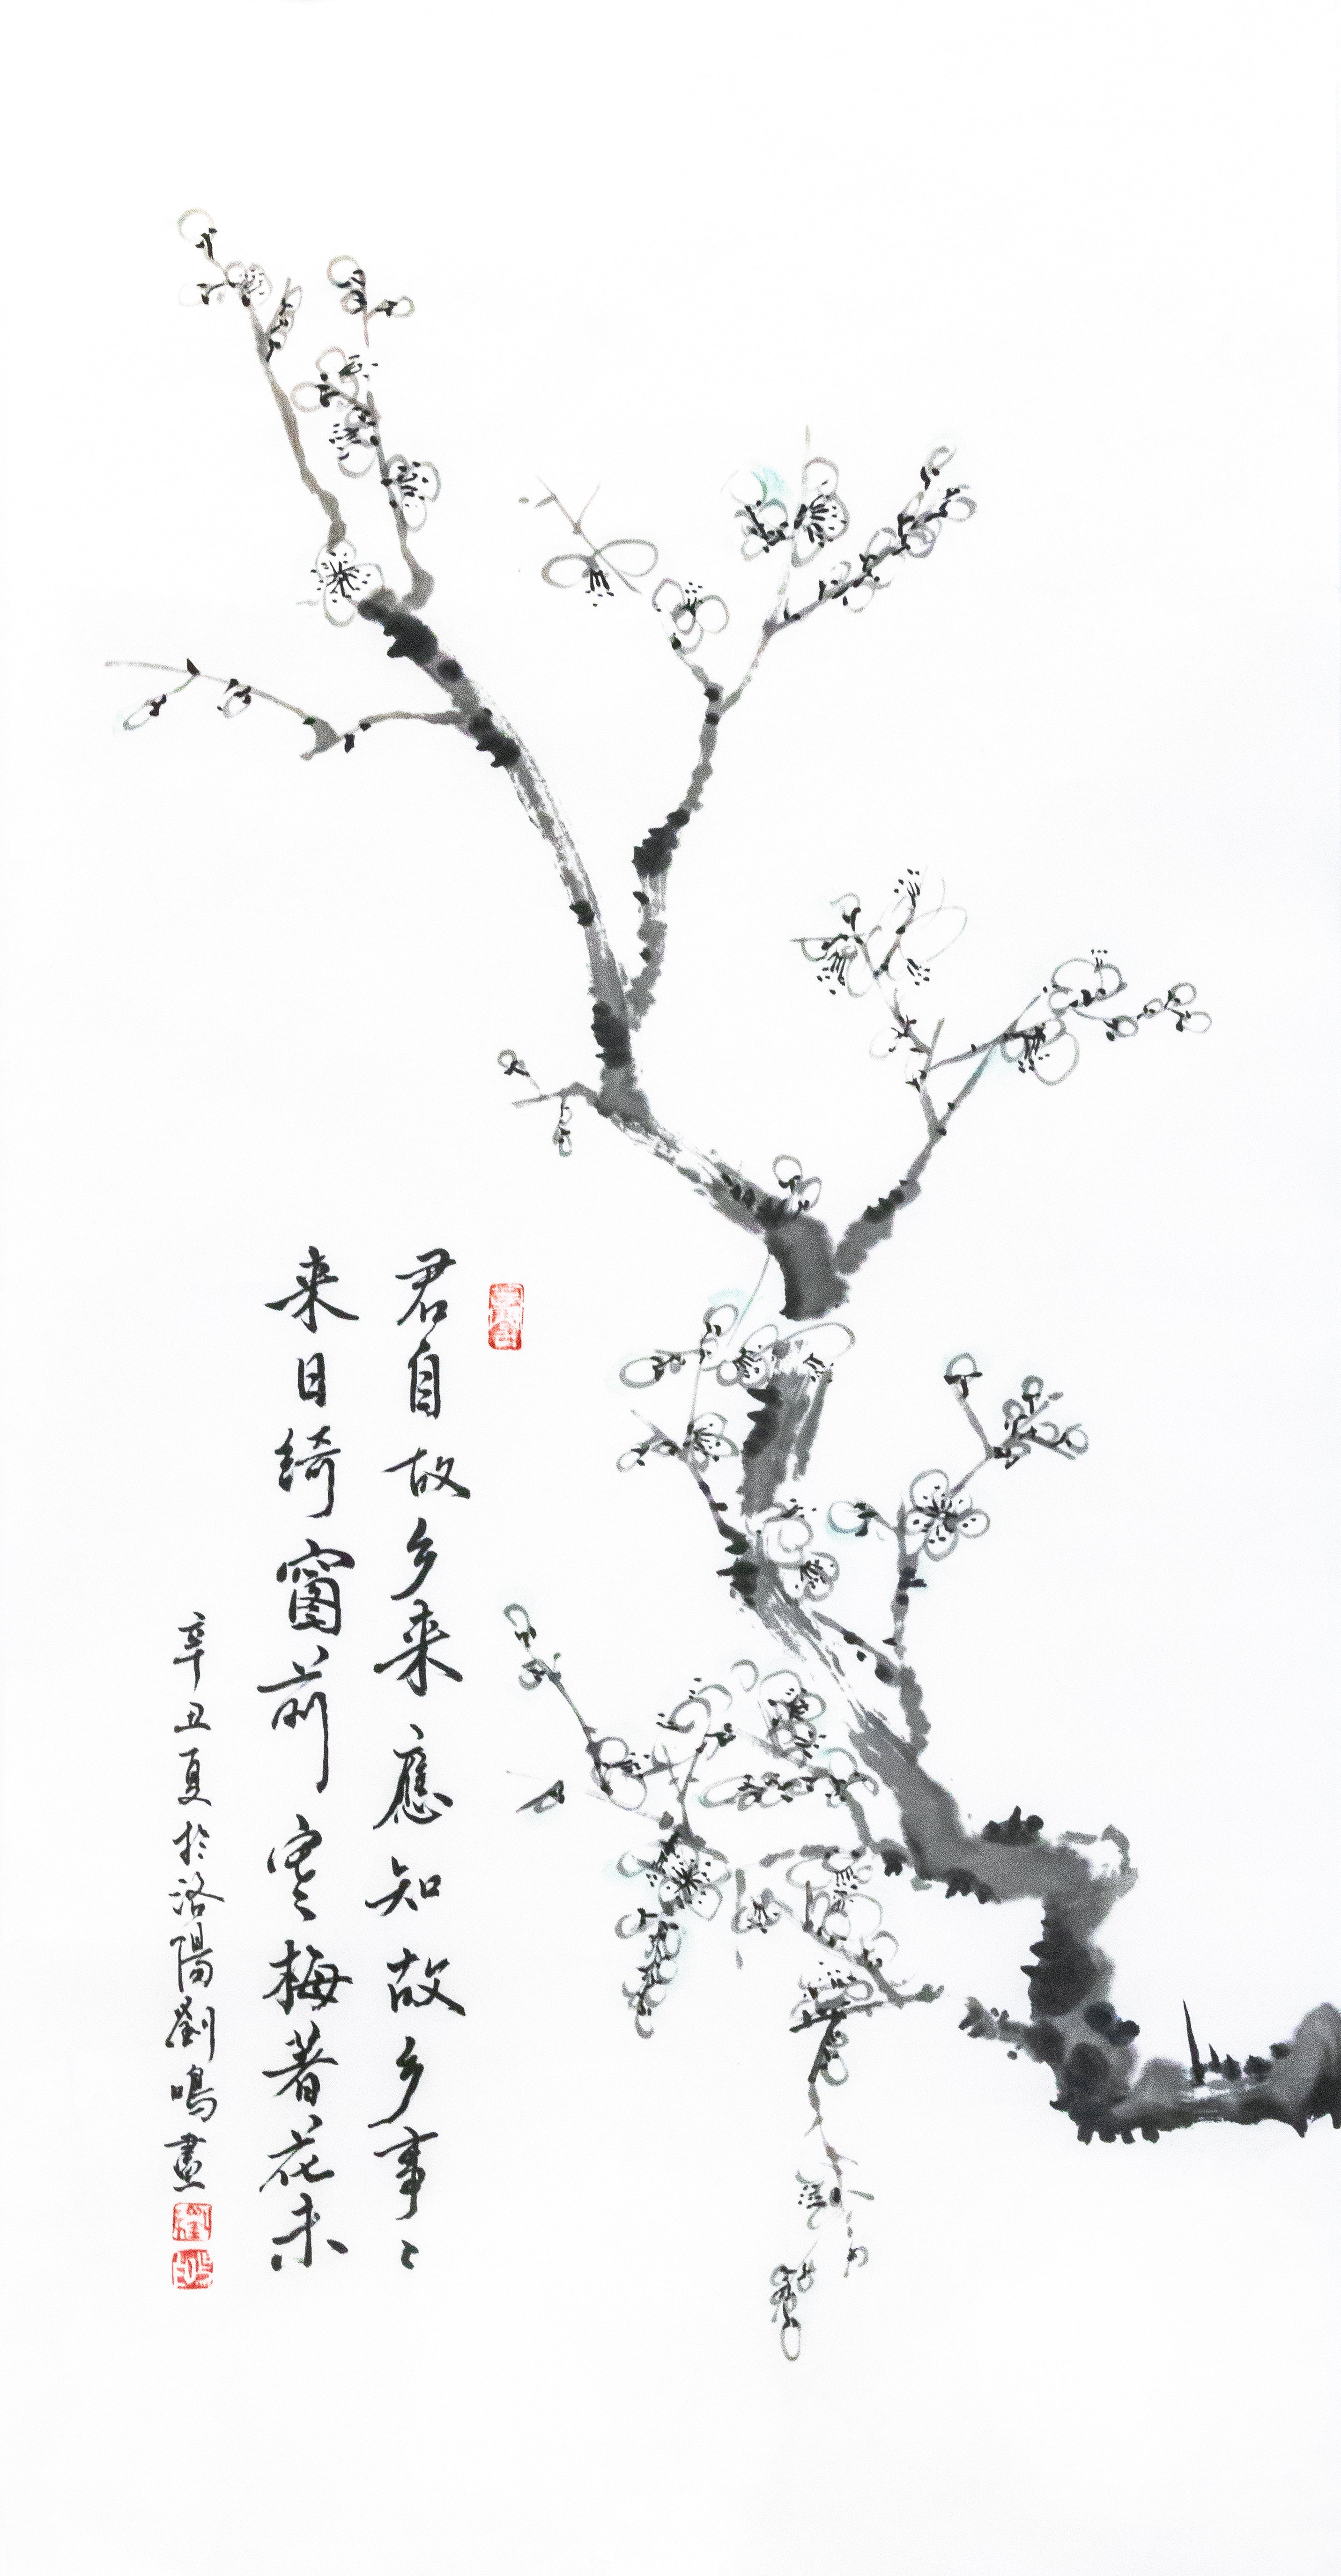 君自故乡来應知故乡事〻
来日綺窗前寒梅著花未
辛丑夏於洛陽劉鳴畫